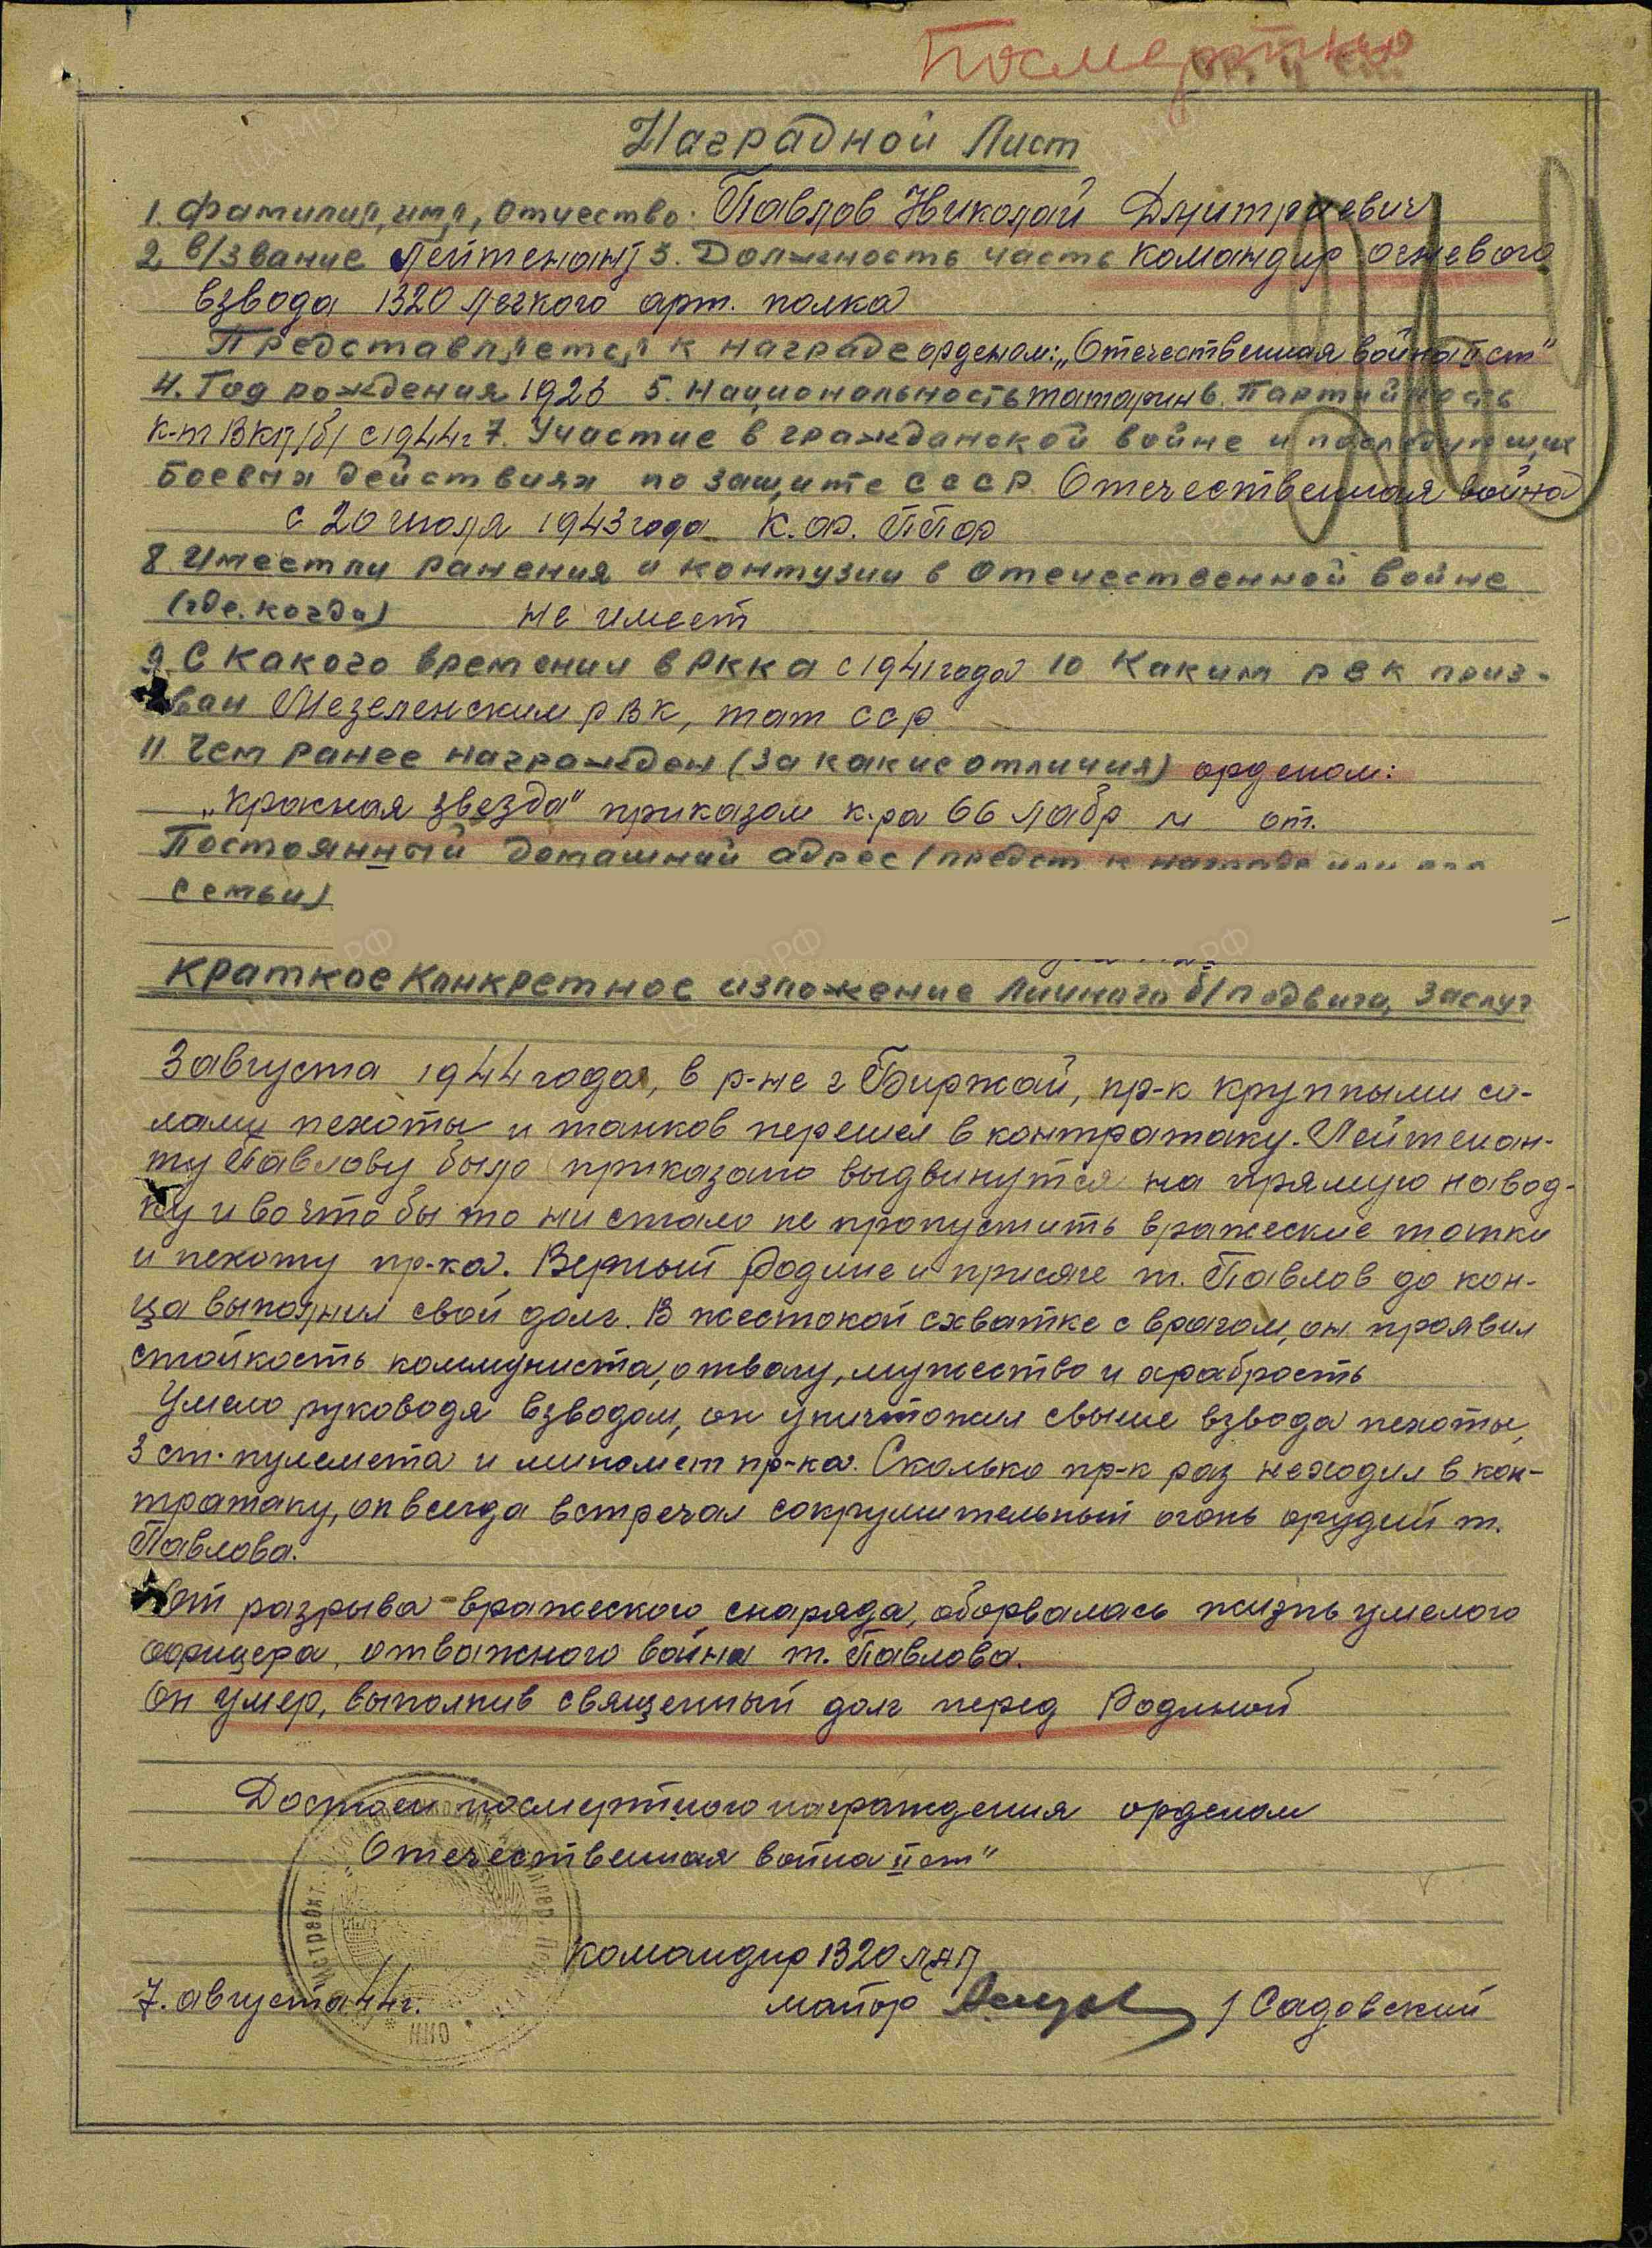 Посмертно
Наградной Лист
1. Фамилия, имя, отчество: Павлов Николай Дмитриевич
2. в/звание Лейтенант 3. Должность часть командир огневого
взвода 1320 легкого арт. полка
Представляется к награде орденом: „Отечественная война II ст"
4. Год рождения 1923 5. Национальность татарин 6. Партийность
к-т ВКП/б/ с 1944 г 7. Участие в гражданской войне и последующих
боевых действиях по защите СССР Отечественная война
с 20 июля 1943 года
8. Имеет ли ранения и контузии в Отечественной войне
(где, когда) не имеет
9. С какого времени в РККА с 1941 года 10 Каким РВК приз-
ван РВК, тат ССР
11 Чем ранее награжден (за какие отличия) орденом:
„Красная звезда" приказом к-ра 66 лабр № от.
Постоянный домашний адрес (предст. к награде или его
семьи)
Краткое конкретное изложение личного б/подвига, заслуг
3 августа 1944 года, в р-не г Биржай, пр-к крупными си-
лами пехоты и танков перешел в контратаку. Лейтенан-
ту Павлову было приказано выдвинутся на прямую навод-
ку и во что бы то ни стало не пропустить вражеские танки
и пехоту пр-ка. Верный Родине и присяге т. Павлов до кон-
ца выполнил свой долг. В жестокой схватке с врагом, он проявил
стойкость коммуниста, отвагу, мужество и храбрость
Умело руководя взводом, он уничтожил свыше взвода пехоты,
3 ст. пулемета и миномет пр-ка. Сколько пр-к раз не ходил в кон-
тратаку, он всегда встречал сокрушительный огонь орудий т.
Павлова.
От разрыва вражеского снаряда, оборвалась жизнь умелого
офицера, отважного война т. Павлова.
Он умер, выполнив священный долг перед Родиной
Достоен посмертного награждения орденом
„Отечественная война II ст"
Командир 1320 ЛАП
7. августа 44 г. майор / Садовский